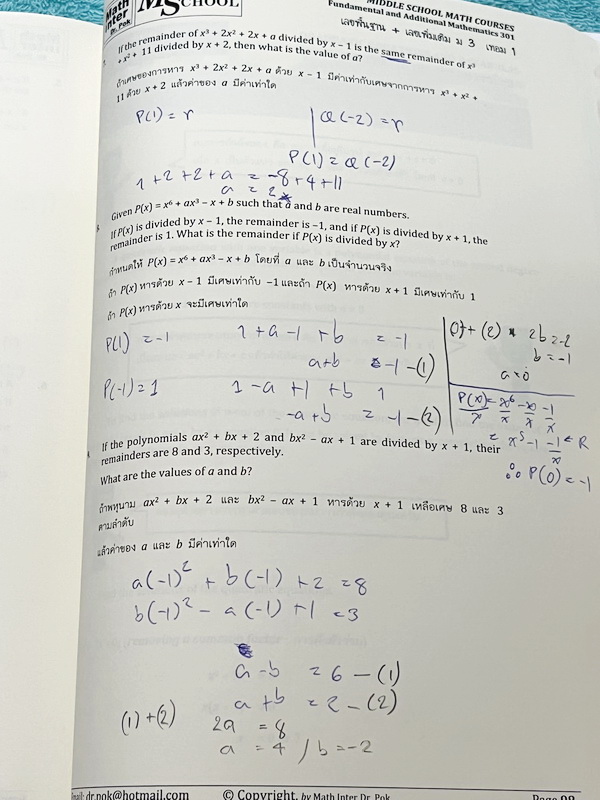 Math
Inter
Dr. Pok
MSCHOOL
MIDDLE SCHOOL MATH COURSES
Fundamental and Additional Mathematics 301
เลขพื้นฐาน + เลขเพิ่มเติม ม 3 เทอม 1
If the remainder of x³ + 2x² + 2x + a divided by x − 1 is the same remainder of x³
+ x² + 11 divided by x + 2, then what is the value of a?
ถ้าเศษของการหาร x³ + 2x² + 2x + a ด้วย x − 1 มีค่าเท่ากับเศษจากการหาร x³ + x² +
11 ด้วย x + 2 แล้วค่าของ a มีค่าเท่าใด
P(1) = r
Q(-2) = r
P(1) = Q(-2)
1 + 2 + 2 + a = -8 + 4 + 11
a = 2
Given P(x) = x⁶ + ax³ − x + b such that a and b are real numbers.
If P(x) is divided by x − 1, the remainder is −1, and if P(x) is divided by x + 1, the
remainder is 1. What is the remainder if P(x) is divided by x?
กำหนดให้ P(x) = x⁶ + ax³ − x + b โดยที่ a และ b เป็นจำนวนจริง
ถ้า P(x) หารด้วย x − 1 มีเศษเท่ากับ −1 และถ้า P(x) หารด้วย x + 1 มีเศษเท่ากับ 1
ถ้า P(x) หารด้วย x จะมีเศษเท่าใด
P(1) = -1
1 + a - 1 + b = -1
a+b = -1 -(1)
P(-1) = 1
1 - a + 1 + b 1
-a + b = -1 -(2)
+ (2) 2b = -2
b = -1
a = 0
P(x)/x = x⁶/x - x/x - 1/x
= x⁵ - 1 - 1/x ← R
∴ P(0) = -1
If the polynomials ax² + bx + 2 and bx² − ax + 1 are divided by x + 1, their
remainders are 8 and 3, respectively.
What are the values of a and b?
ถ้าพหุนาม ax² + bx + 2 และ bx² − ax + 1 หารด้วย x + 1 เหลือเศษ 8 และ 3
ตามลำดับ
แล้วค่าของ a และ b มีค่าเท่าใด
a(-1)² + b(-1) + 2 = 8
b(-1)² - a(-1) + 1 = 3
a - b = 6 - (1)
a + b = 2 - (2)
(1) + (2) 2a = 8
a = 4 / b = -2
mail: dr.pok@hotmail.com © Copyright, by Math Inter Dr. Pok Page 98